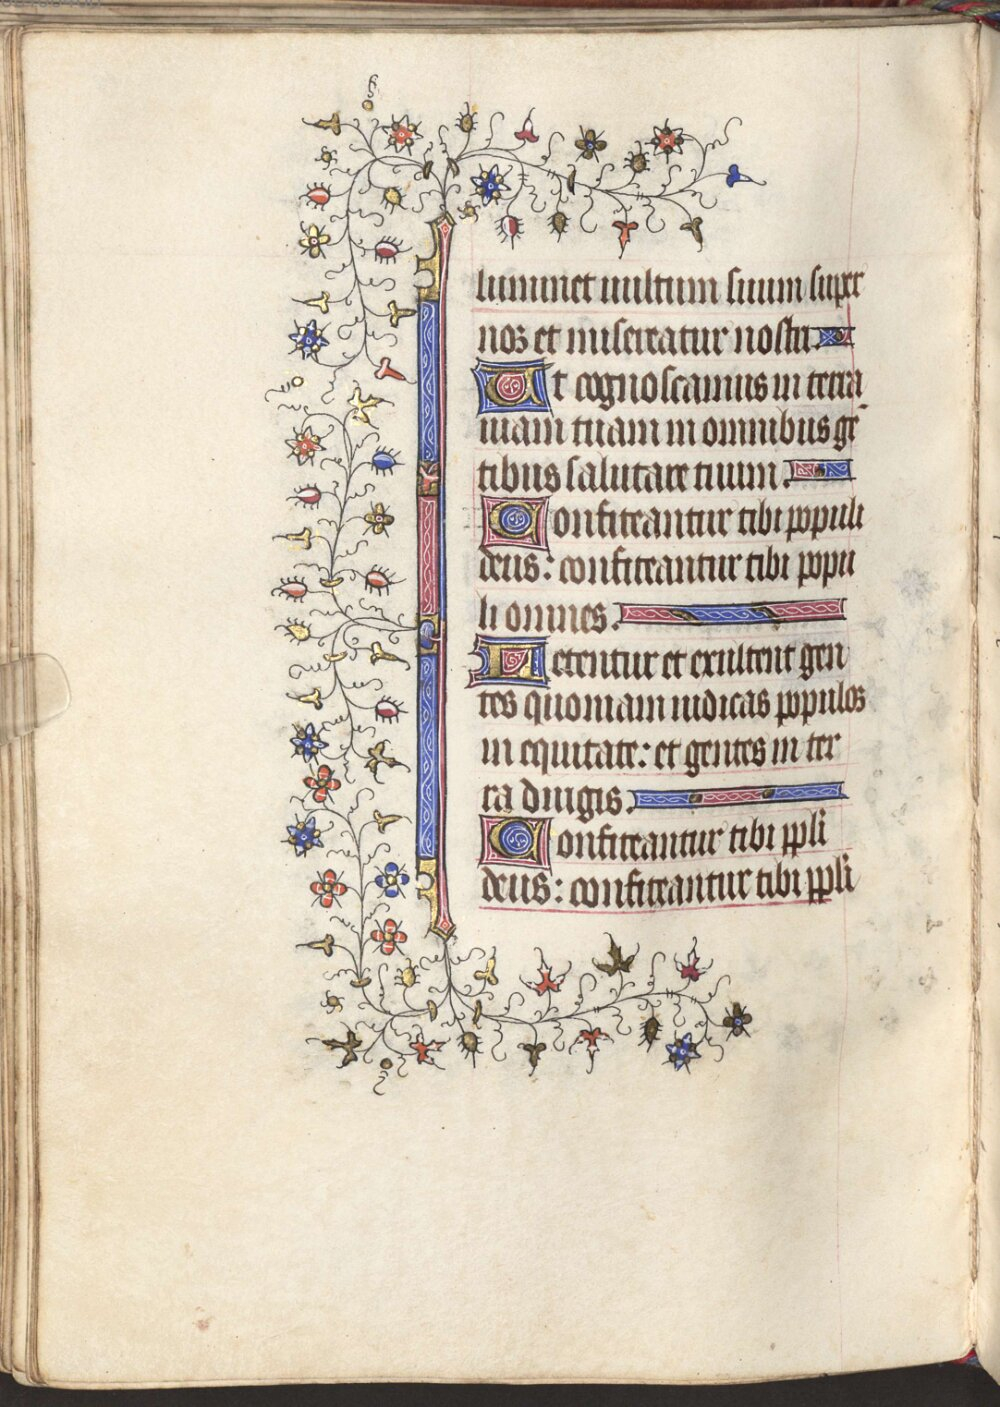 luminet uultum suum super
nos et misereatur nostri.
Ut cognoscamus in terra
uiam tuam in omnibus gē
tibus salutare tuum.
Confiteantur tibi populi
deus: confiteantur tibi popu
li omnes.
Letentur et exultent gen
tes quoniam iudicas populos
in equitate: et gentes in ter
ra dirigis.
Confiteantur tibi ppli
deus: confiteantur tibi ppli